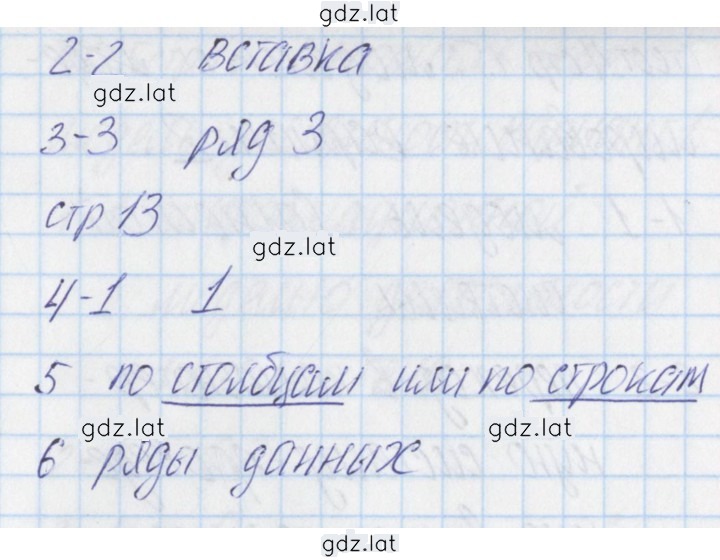 gdz.lat
2-2 вставка
gdz.lat
3-3 ряд 3
стр 13
gdz.lat
4-1 1
5 по столбцам или по строкам
gdz.lat gdz.lat
6 ряды данных
gdz.lat